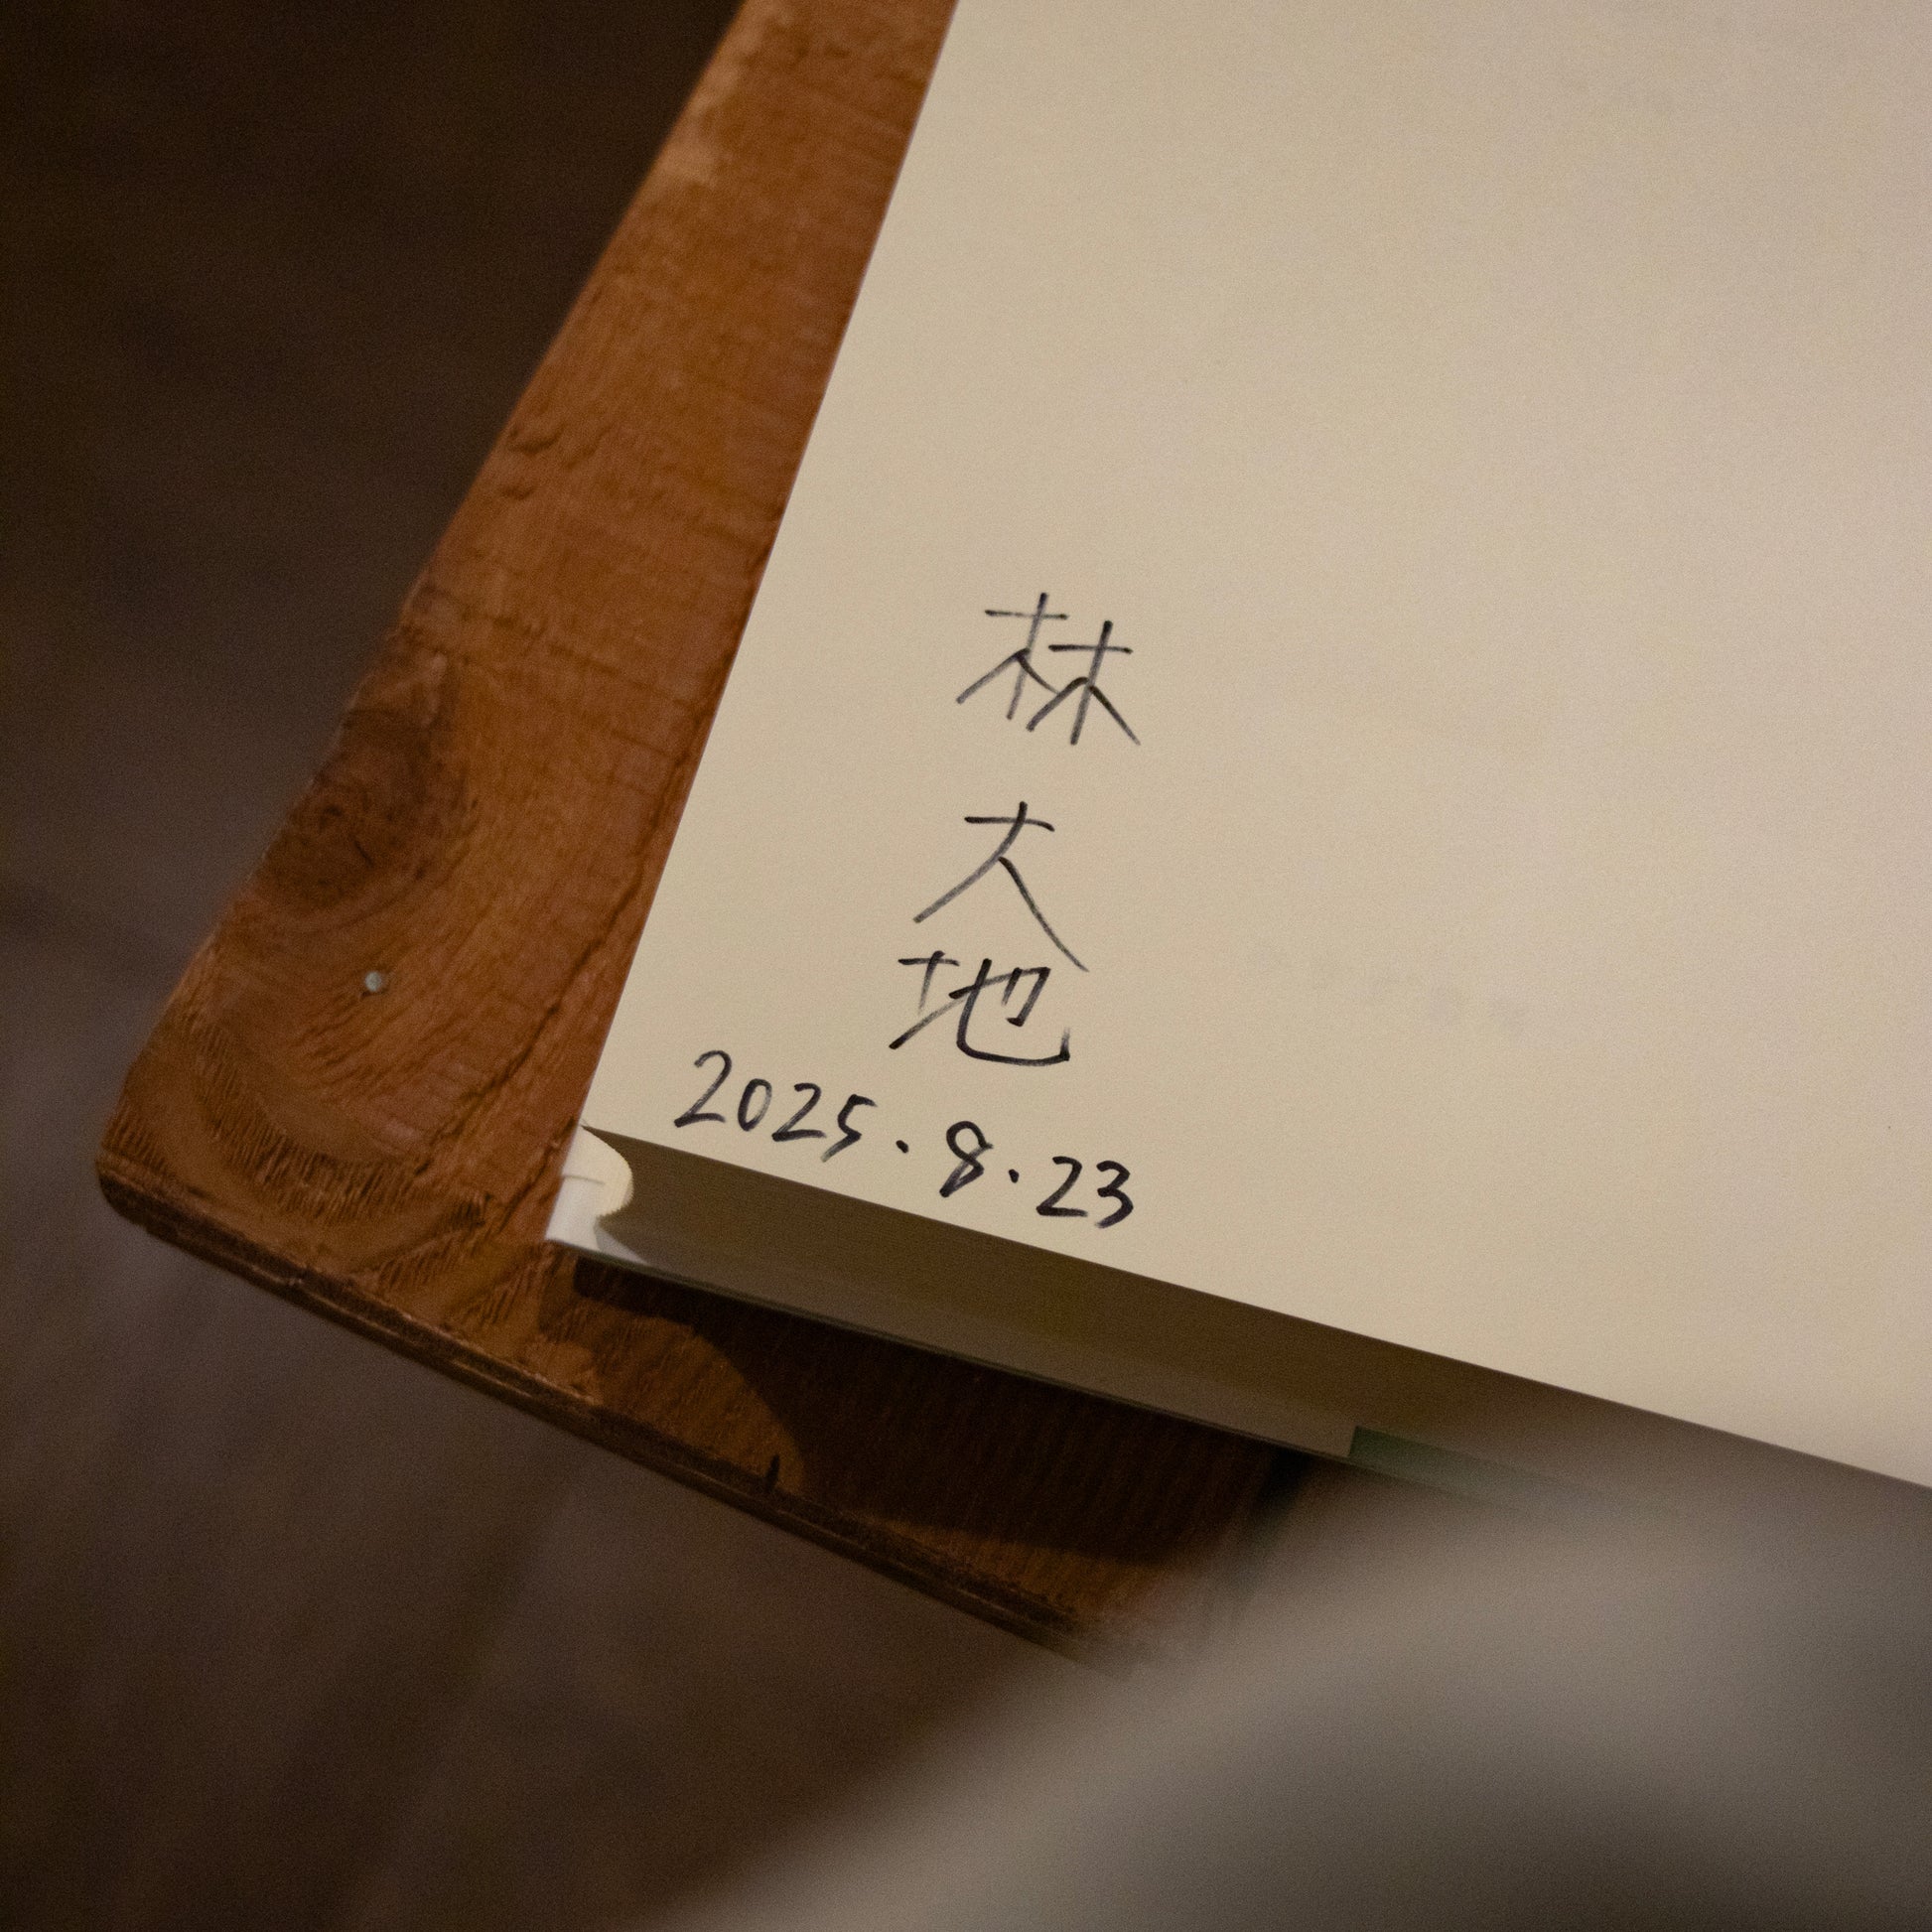 林大地
2025.8.23